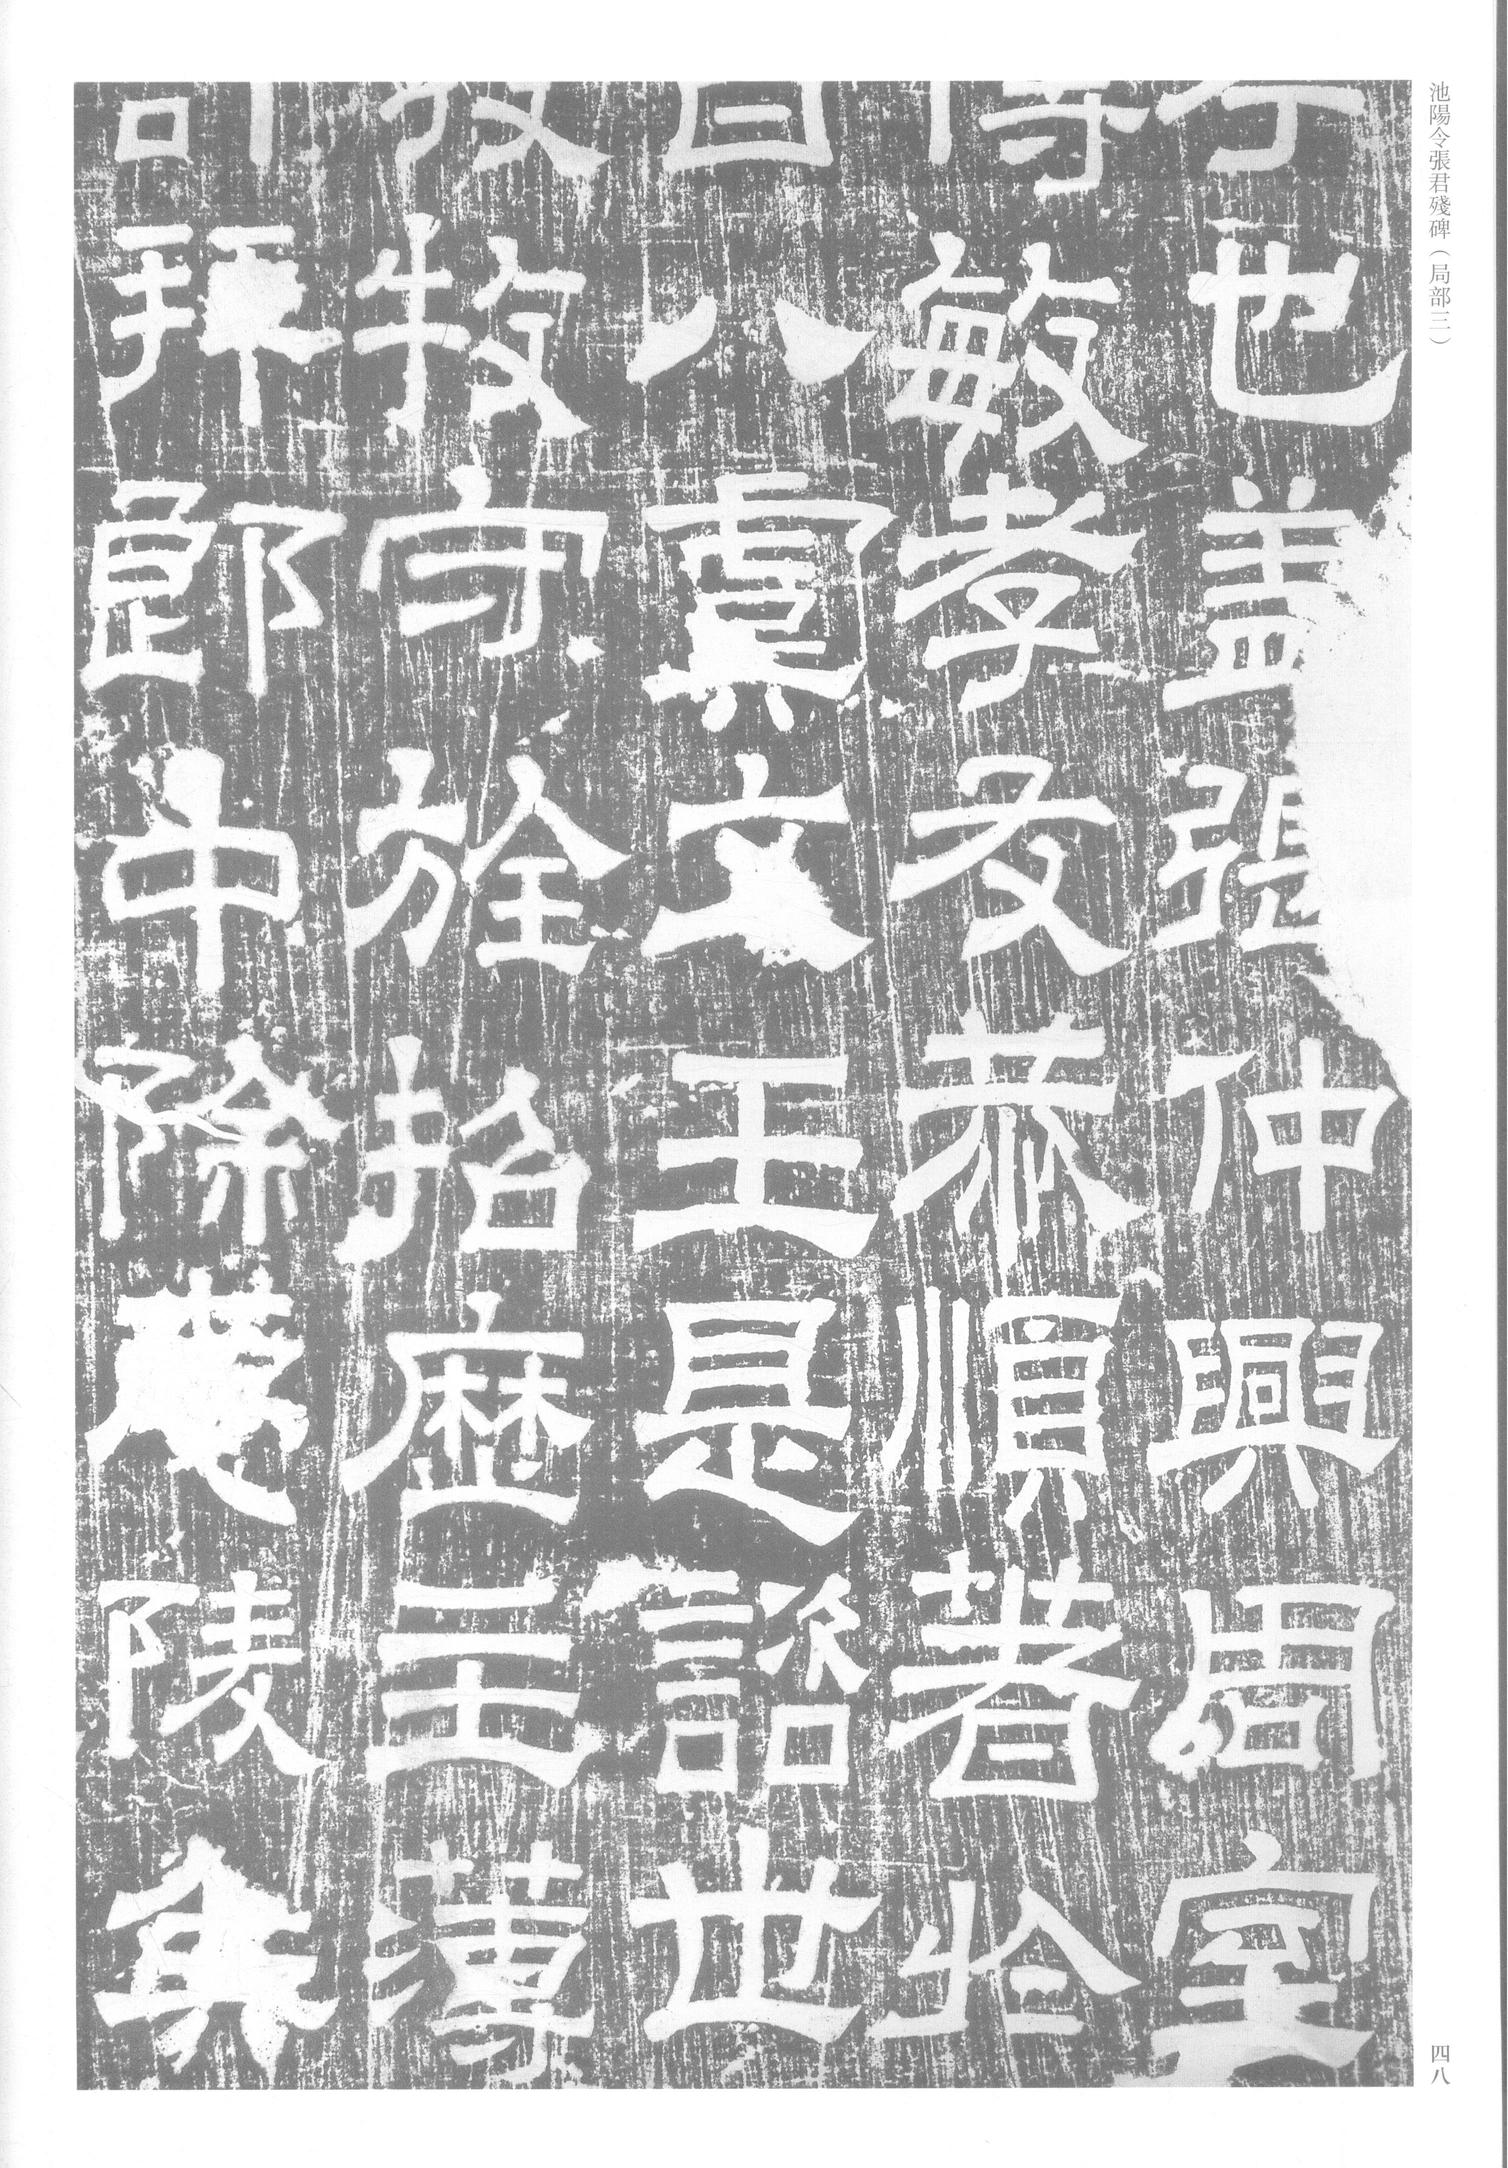 池陽令張君殘碑(局部三)
也蓋張仲興周室
敏孝友恭順著於
八虞文王是諮世
牧守旌招歷主薄
拜郎中除陵
四八